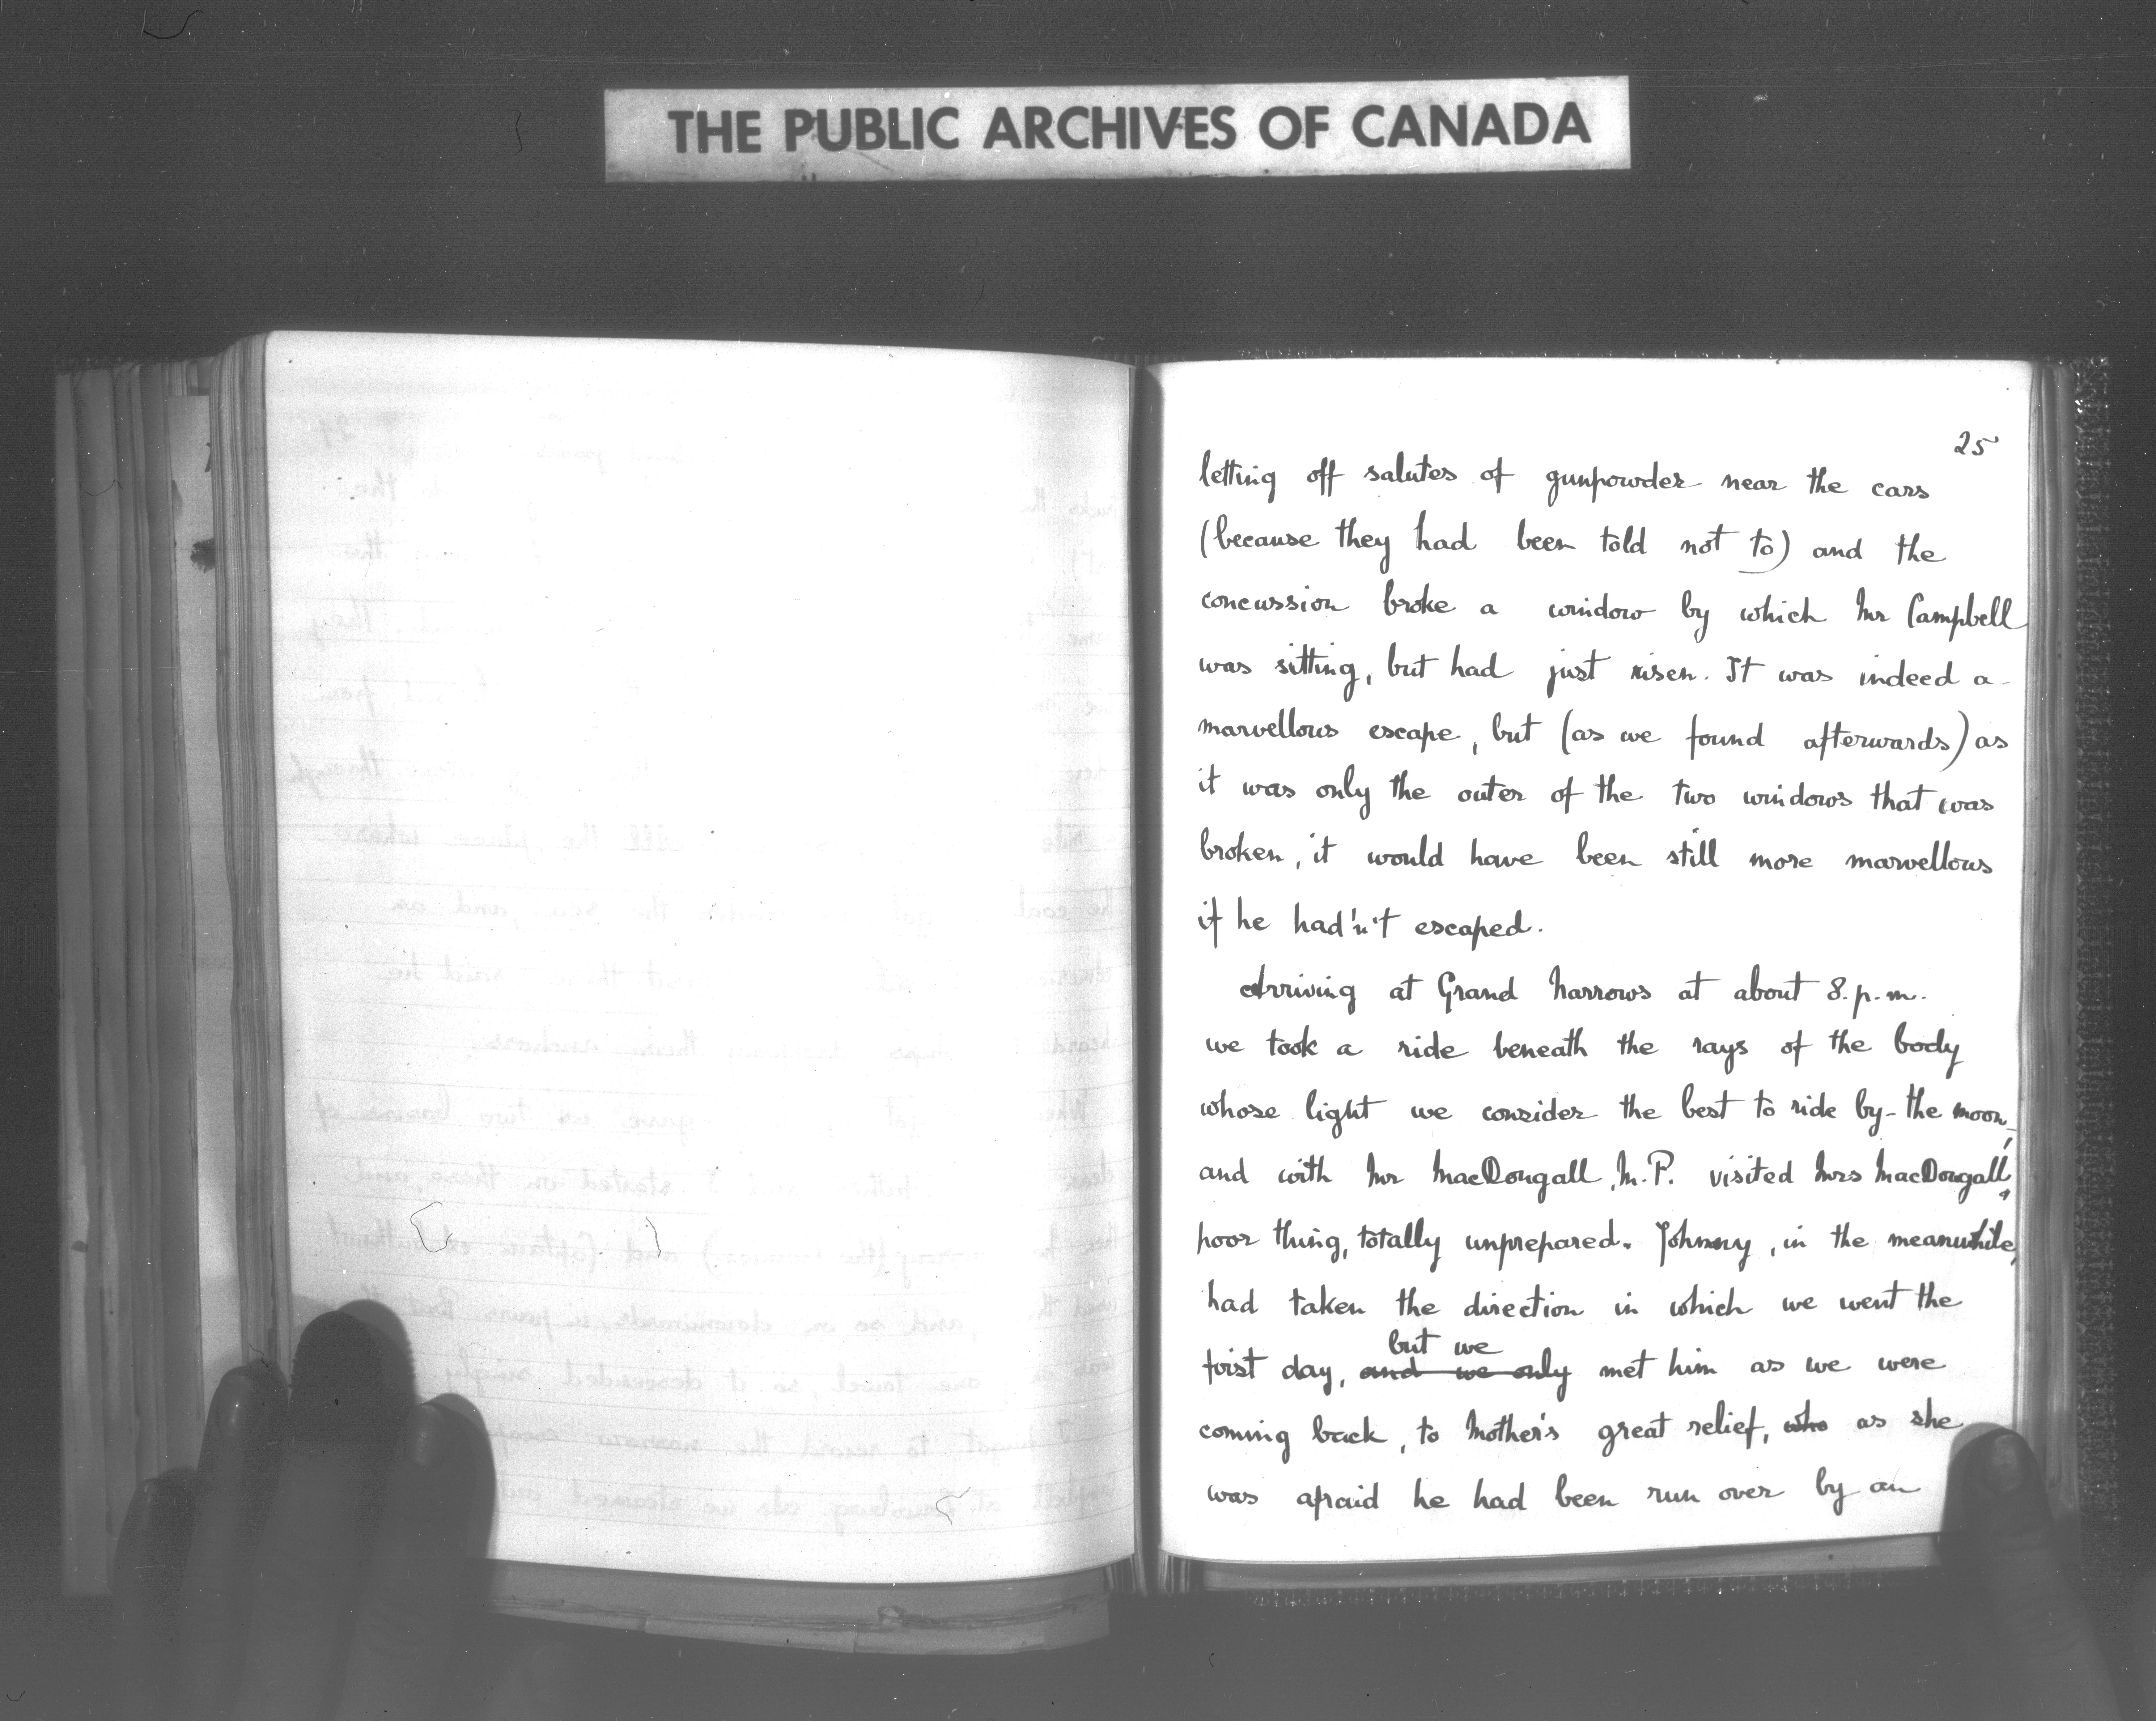 THE PUBLIC ARCHIVES OF CANADA
25
letting off salutes of gunpowder near the cars
(because they had been told not to) and the
concussion broke a window by which Mr Campbell
was sitting, but had just risen. It was indeed a
marvellous escape, but (as we found afterwards) as
it was only the outer of the two windows that was
broken, it would have been still more marvellous
if he had'n't escaped.
Arriving at Grand Narrows at about 8.p.m.
we took a ride beneath the rays of the body
whose light we consider the best to ride by - the moon,
and with Mr MacDougall, M.P. visited Mrs MacDougall,
poor thing, totally unprepared. Johnny, in the meanwhile,
had taken the direction in which we went the
but we
first day, and we only met him as we were
coming back, to Mother's great relief, who as she
was afraid he had been run over by an